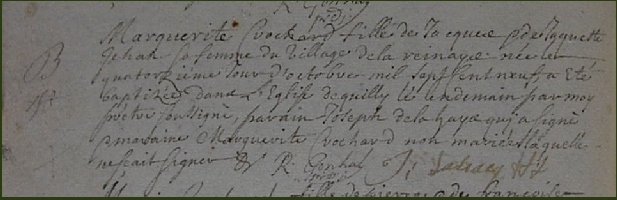 B
Marguerite Crochard fille de Jacques & de Jaquette
Jehan sa femme du village de la reinaye née le
quatorzième Jour d'octobre mil sept cent neuf a été
baptizée dans l'Eglise de quilly le lendemain par moy
prêtre soussigné, parain Joseph de la haye quy a signé
& maraine Marguerite Crochard non mariée laquelle
ne scait signer &
fille de pierre & de françoise